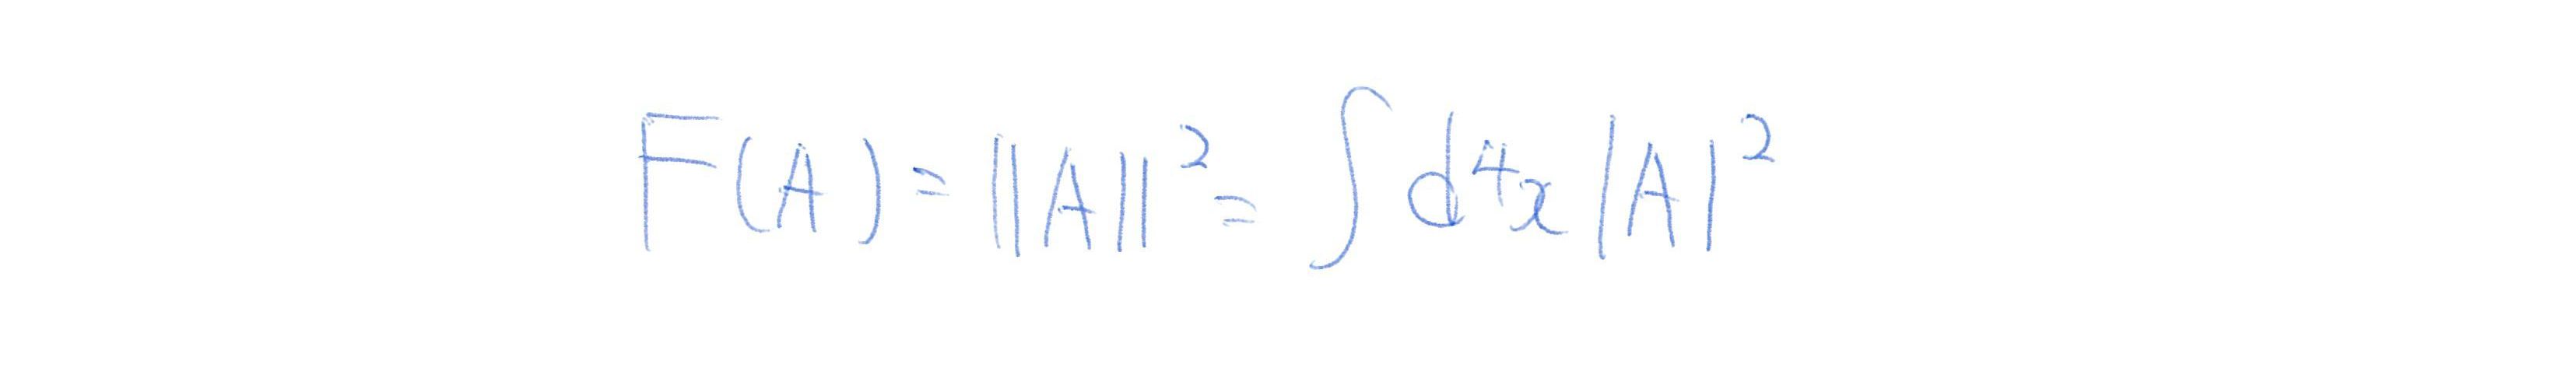 F(A) = ||A||² = ∫ d⁴x |A|²